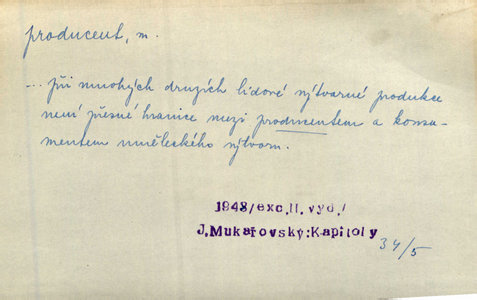 producent, m.
... při mnohých druzích lidové výtvarné produkce
není přesné hranice mezi producentem a konsu-
mentem uměleckého výtvoru.
1948/exc.II.vyd./
J.Mukařovský:Kapitoly
34/5